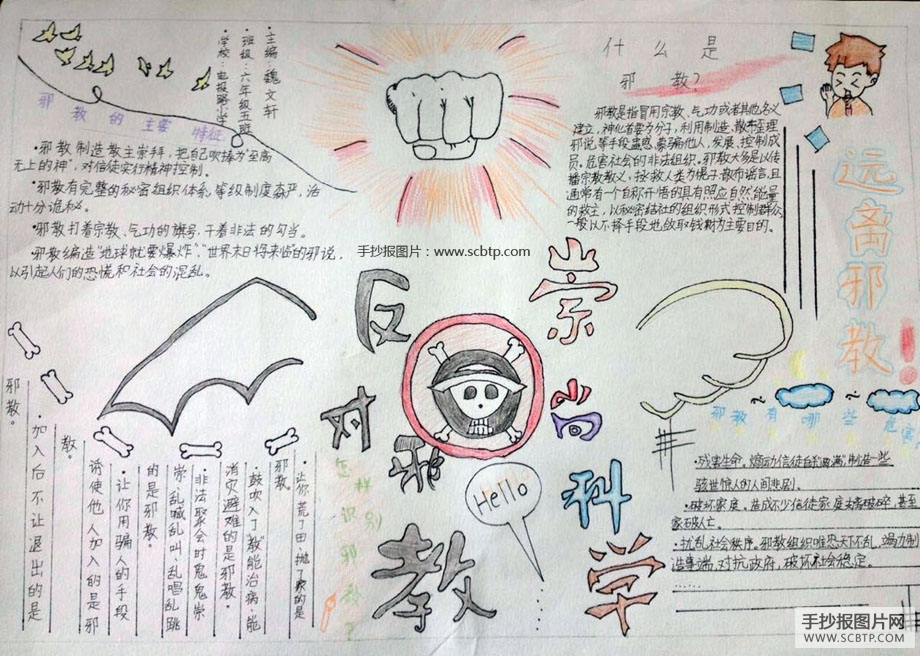 ·主编:魏文轩
·班级:六年级五班
·学校:电报路小学
邪教的主要特征
·邪教制造教主崇拜,把自己吹捧为"至高
无上的神",对信徒实行精神控制。
·邪教有完整的秘密组织体系,等级制度森严,活
动十分诡秘。
·邪教打着宗教、气功的旗号,干着非法的勾当。
·邪教编造"地球就要爆炸"、"世界末日将来临"的邪说,
以引起人们的恐慌和社会的混乱。
什么是
邪教?
邪教是指冒用宗教、气功或者其他名义
建立,神化首要分子,利用制造、散布歪理
邪说等手段蛊惑、蒙骗他人,发展、控制成
员,危害社会的非法组织。邪教大多是以传
播宗教教义,拯救人类为幌子,散布谣言,且
通常有一个自称开悟的具有
自然能量
的教主,以秘密结社的组织形式控制群众,
一般以不择手段地敛取钱财为主要目的。
远离邪教!
手抄报图片:www.scbtp.com
反对邪教
崇尚科学
Hello
怎样识别邪教?
·让你荒了田抛了家的是
邪教。
·鼓吹入了"教"能治病、能
消灾避难的是邪教。
·非法聚会时鬼鬼祟
祟、乱喊乱叫、乱唱乱跳
的是邪教。
·让你用骗人的手段
诱使他人加入的是邪
教。
·加入后不让退出的是
邪教。
邪教有哪些危害
·残害生命。煽动信徒自
制造一些
骇世惊人的人间悲剧。
·破坏家庭。造成不少信徒家庭夫离破碎,甚至
家破人亡。
·扰乱社会秩序。邪教组织唯恐天下不乱,竭力制
造事端,对抗政府,破坏社会稳定。
手抄报图片网
WWW.SCBTP.COM